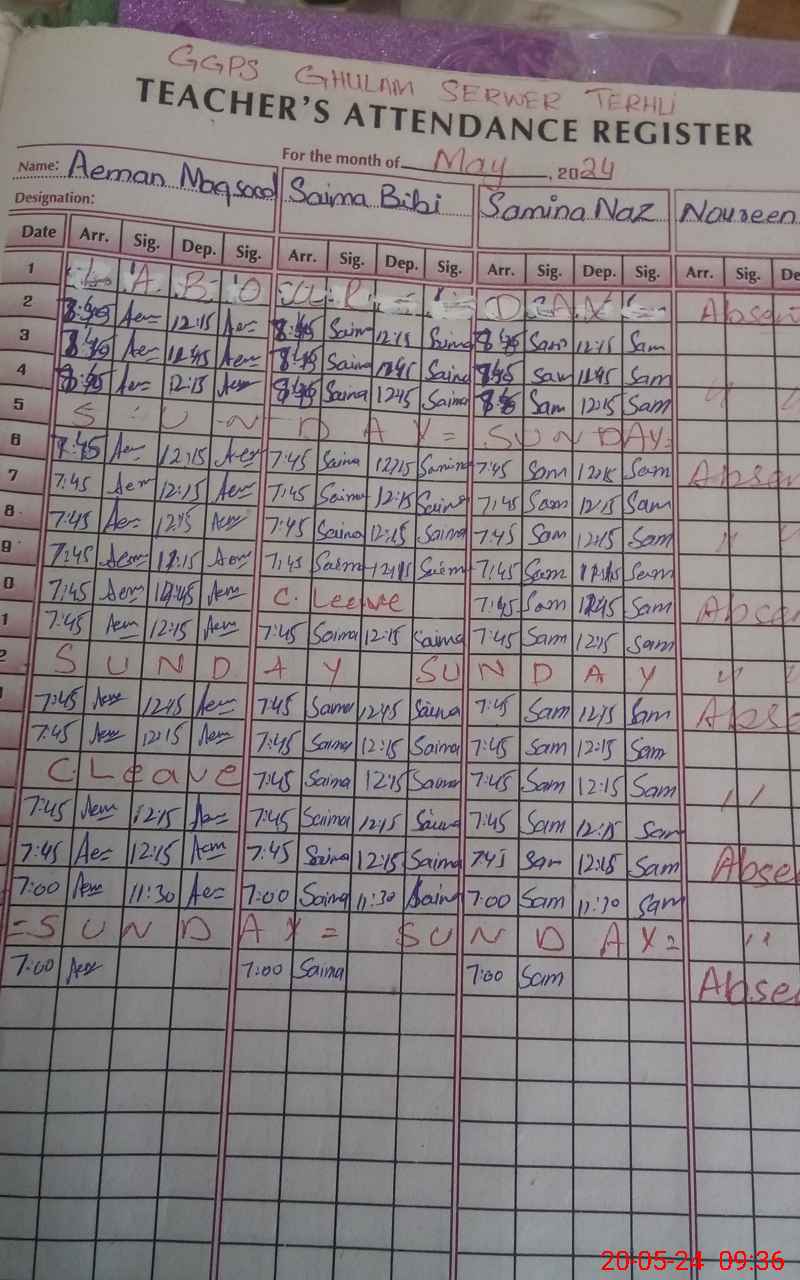 GGPS GHULAM SERWER TERHLI
TEACHER'S ATTENDANCE REGISTER
For the month of May, 2024
Name: Aeman Maqsood Saima Bibi Samina Naz Noureen
Designation:
Date Arr. Sig. Dep. Sig. Arr. Sig. Dep. Sig. Arr. Sig. Dep. Sig. Arr. Sig. De
1 L A B O U R = = D A Y = Absen
2 8:45 Aem 12:15 Aem 8:45 Saima 12:15 Saima 8:45 Sam 12:15 Sam
3 8:45 Aem 8:45 Saima Saima 8:45 Sam Sam
4 8:45 Aem 12:15 Aem 8:45 Saima 12:15 Saima Sam 12:15 Sam "
5 S U N D A Y = SUNDAY=
6 7:45 Aem 12:15 Aem 7:45 Saima 12:15 7:45 Sam 12:15 Sam Absen
7 7:45 Aem 12:15 Aem 7:45 Saima 12:15 Saima 7:45 Sam 12:15 Sam
8 7:45 Aem 12:15 Aem 7:45 Saima 12:15 Saima 7:45 Sam 12:15 Sam "
9 7:45 Aem Aem 7:45 Saima Saima 7:45 Sam Sam
0 7:45 Aem Aem C. Leeave 7:45 Sam Sam Absen
1 7:45 Aem 12:15 Aem 7:45 Saima 12:15 Saima 7:45 Sam 12:15 Sam
2 S U N D A Y SUNDAY "
7:45 Aem 12:15 Aem 7:45 Saima 12:15 Saima 7:45 Sam 12:15 Sam Abse
7:45 Aem 12:15 Aem 7:45 Saima 12:15 Saima 7:45 Sam 12:15 Sam
C. Leave 7:45 Saima 12:15 Saima 7:45 Sam 12:15 Sam "
7:45 Aem 12:15 Aem 7:45 Saima 12:15 Saima 7:45 Sam 12:15 Sam
7:45 Aem 12:15 Aem 7:45 Saima 12:15 Saima 7:45 Sam 12:15 Sam Absen
7:00 Aem 11:30 Aem 7:00 Saima 11:30 Saima 7:00 Sam 11:30 Sam
=S U N D A Y = SUN D A Y= "
7:00 Aem 7:00 Saima 7:00 Sam Absen
20-05-24 09:36